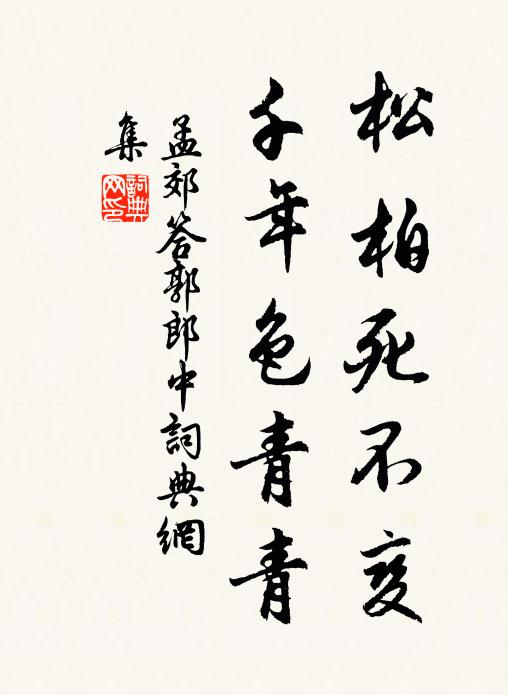 松柏死不变
千年色青青
孟郊答郭郎中詞典網
集
詞典網印